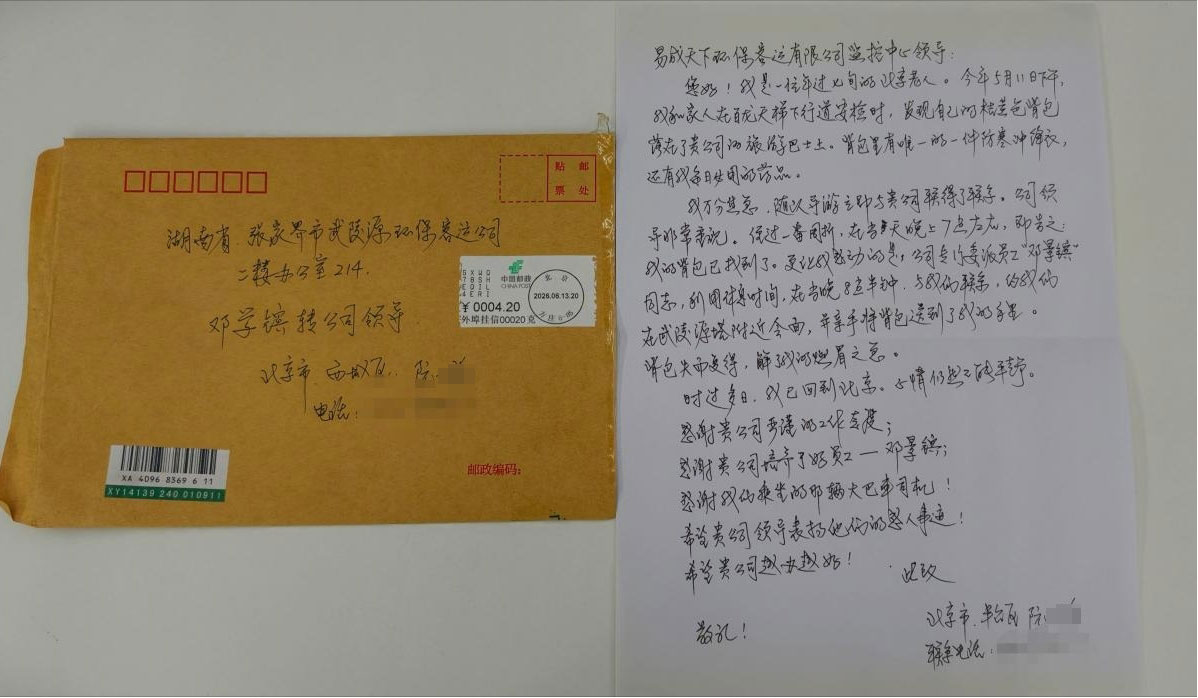 贴 邮
票 处
湖南省 张家界市武陵源环保客运公司
二楼办公室214.
邓景镔转公司领导
北京市 西城区 阮
电话:
中国邮政
CHINA POST
¥ 0004.20
外埠挂信00020克
北京
2026.06.13.20
XA 4096 8369 6 11
XY14139 240 010911
邮政编码:
易成天下环保客运有限公司监控中心领导:
您好!我是一位年过七旬的北京老人。今年5月11日下午,
我和家人在百龙天梯下行道安检时,发现自己的桔黄色背包
落在了贵公司的旅游巴士上。背包里有唯一的一件防寒冲锋衣,
还有我每日必用的药品。
我万分焦急,随以导游立即与贵公司取得了联系。公司领
导非常重视。经过一番周折,在当天晚上7点左右,即告之:
我的背包已找到了。更让我感动的是,公司专许委派员工“邓景镔”
同志,利用休息时间,在当晚8点半钟,与我们联系,约我们
在武陵源塔附近会面,并亲手将背包送到了我的手里。
背包失而复得,解了我的燃眉之急。
时过多日,我已回到北京。心情仍然不能平静。
感谢贵公司严谨的工作态度;
感谢贵公司培养了好员工——邓景镔;
感谢我们乘坐的那辆大巴车司机!
希望贵公司领导表扬他们的感人事迹!
希望贵公司越办越好!
此致
敬礼!
北京市 阮
联系电话: